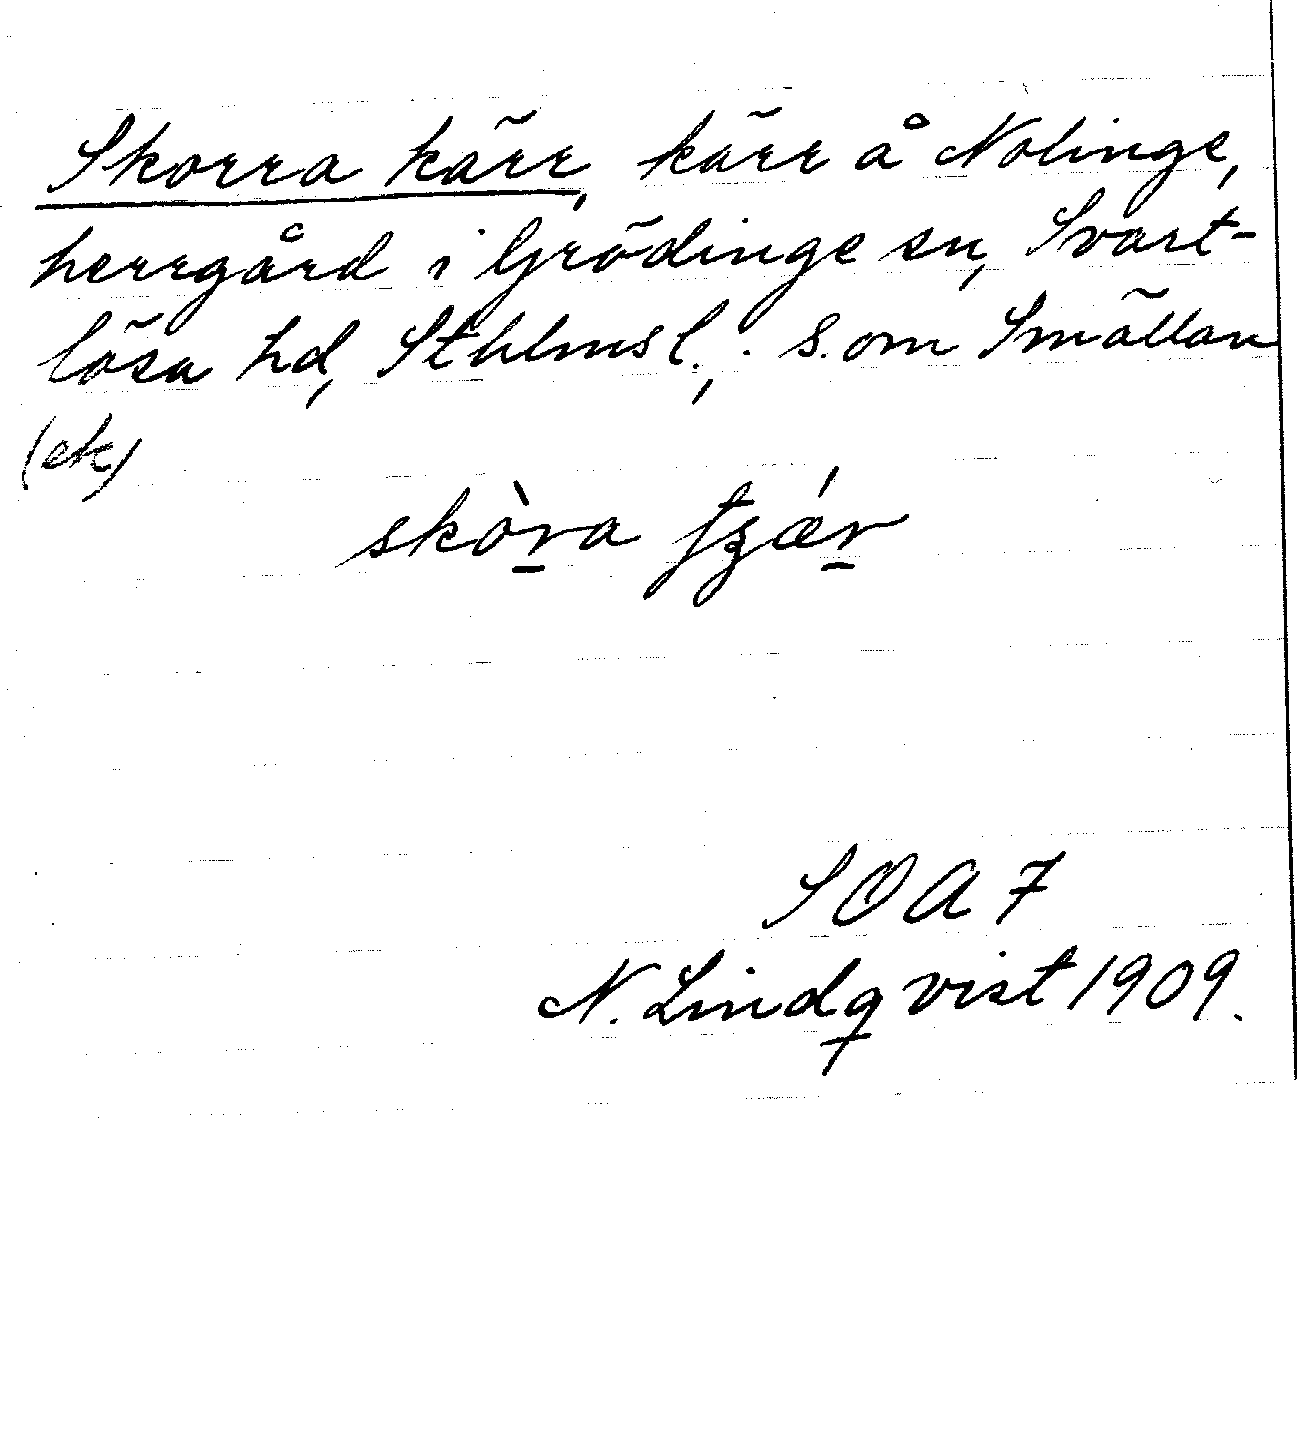 Skorra kärr, kärr å Nolinge,
herrgård i Grödinge sn, Svart-
lösa hd, Sthlmsl.; S. om Smällan
(ek)
skòra tʒǽr
SOA 7
N. Lindqvist 1909.